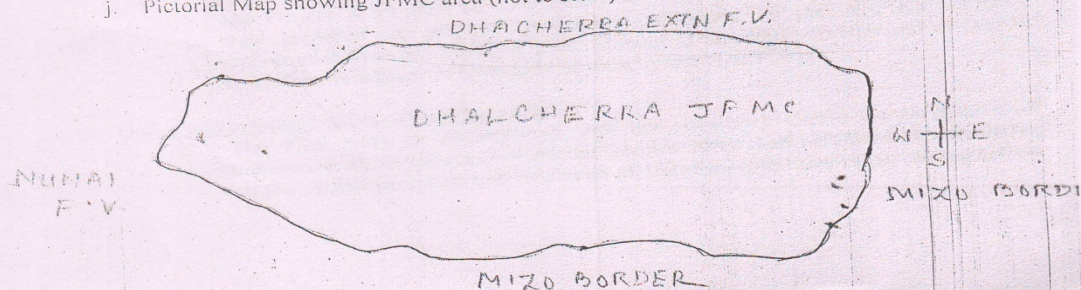 j. Pictorial Map showing JFMC area (not to
DHACHERRA EXTN F.V.
DHALCHERRA JFMC
N
W E
S
NUNAI
F.V.
MIZO BORD
MIZO BORDER